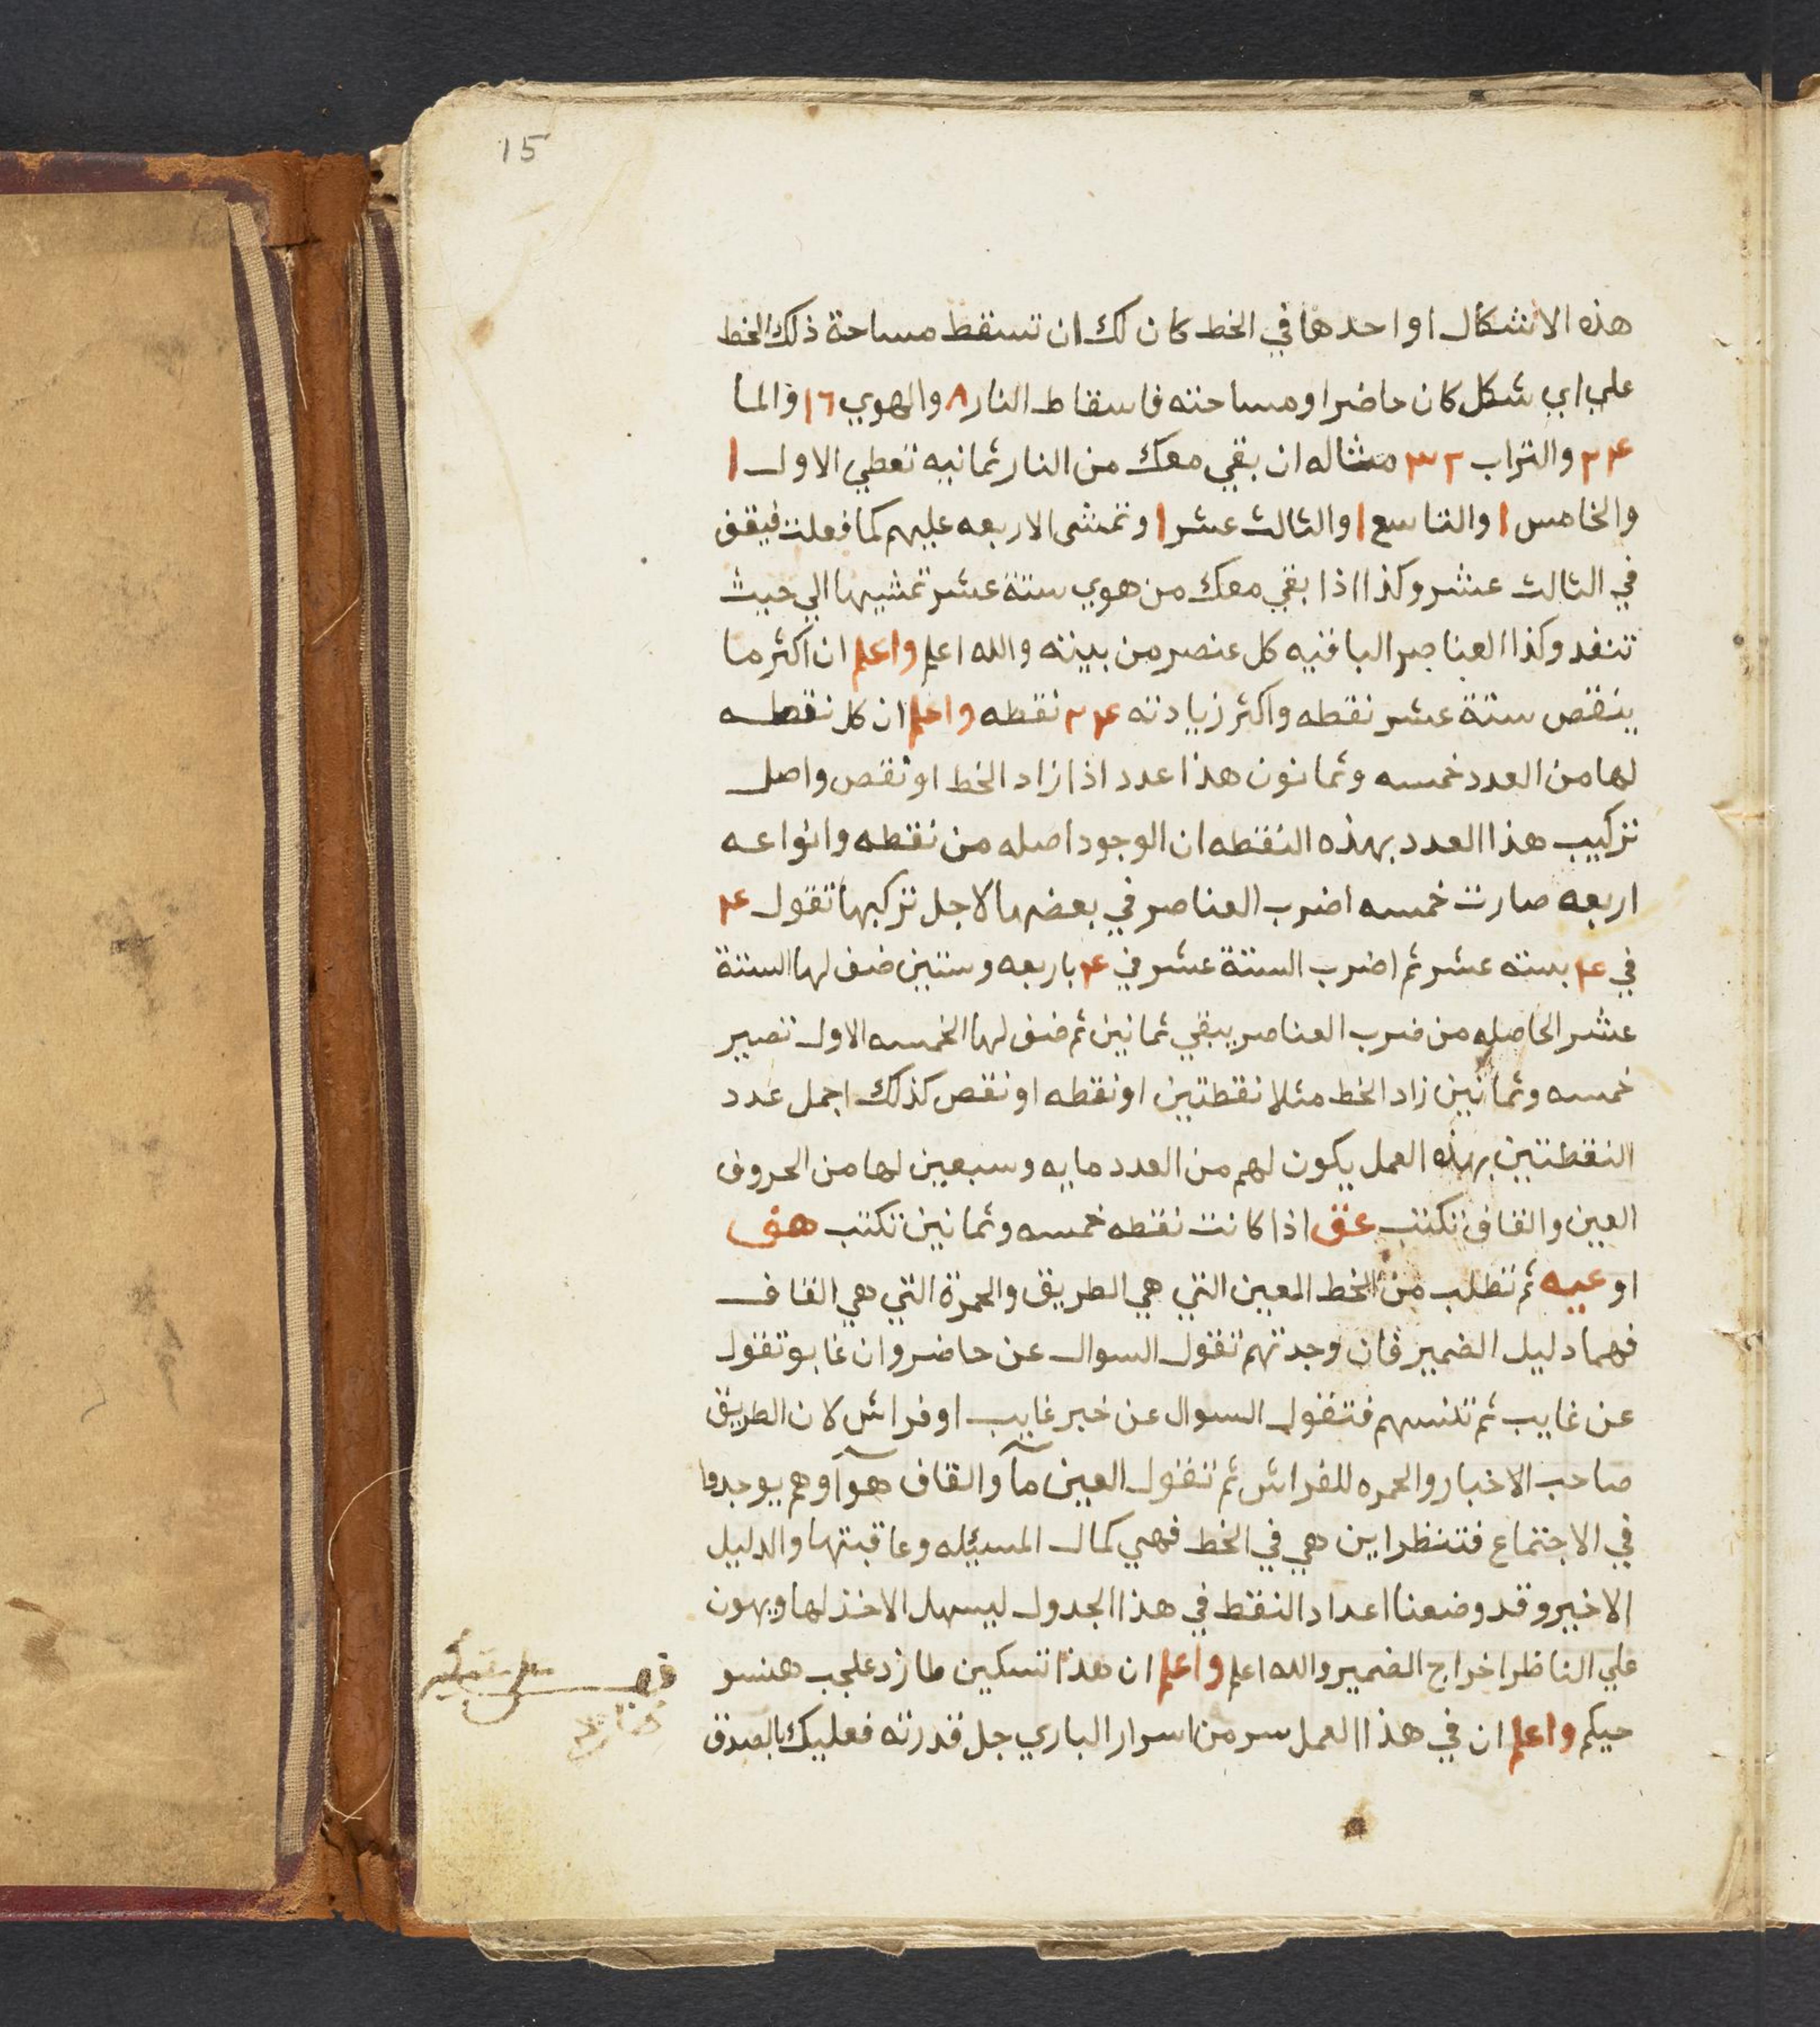 15
هذه الاشكال او احدها في الخط كان لك ان تسقط مساحة ذلك الخط
علي اي شكل كان حاضرا ومساحته فاسقاط النار ٨ والهوي ١٦ والما
٢٤ والتراب ٣٢ مثاله ان بقي معك من النار ثمانيه تعطي الاول ١
والخامس ١ والتاسع ١ والثالث عشر ١ وتمشي الاربعه عليهم كما فعلت فيقف
في الثالث عشر وكذا اذا بقي معك من هوي ستة عشر تمشيها الي حيث
تنفد وكذا العناصر الباقيه كل عنصر من بيته والله اعلم واعلم ان اكثر ما
ينقص ستة عشر نقطه واكثر زيادته ٢٤ نقطه واعلم ان كل نقطه
لها من العدد خمسه وثمانون هذا عدد اذا زاد الخط او نقص واصل
تركيب هذا العدد بهذه النقطه ان الوجود اصله من نقطه وانواعه
اربعه صارت خمسه اضرب العناصر في بعضها لاجل تركبها تقول ٤
في ٤ بسته عشر ثم اضرب الستة عشر في ٤ باربعه وستين ضف لها الستة
عشر الحاصله من ضرب العناصر يبقي ثمانين ثم ضف لها الخمسه الاول تصير
خمسه وثمانين زاد الخط مثلا نقطتين او نقطه او نقص كذلك اجمل عدد
النقطتين بهذه العمل يكون لهم من العدد مايه وسبعين لها من الحروف
العين والقاف تكتب عق اذا كانت نقطه خمسه وثمانين تكتب هف
او عيه ثم تطلب من الخط المعين التي هي الطريق والحمرة التي هي القاف
فهما دليل الضمير فان وجدتهم تقول السوال عن حاضر وان غابو تقول
عن غايب ثم تنسبهم فتقول السوال عن خبر غايب او فراش لان الطريق
صاحب الاخبار والحمره للفراش ثم تقول العين مآ والقاف هوآ وهم يوجدوا
في الاجتماع فتنظر اين هي في الخط فهي كمال المسيله وعاقبتها والدليل
الاخير وقد وضعنا اعداد النقط في هذا الجدول ليسهل الاخذ لها ويهون
علي الناظر اخراج الضمير والله اعلم واعلم ان هذا تسكين طازد علجب هنسو
حيكم واعلم ان في هذا العمل سر من اسرار الباري جل قدرته فعليك بالصدق